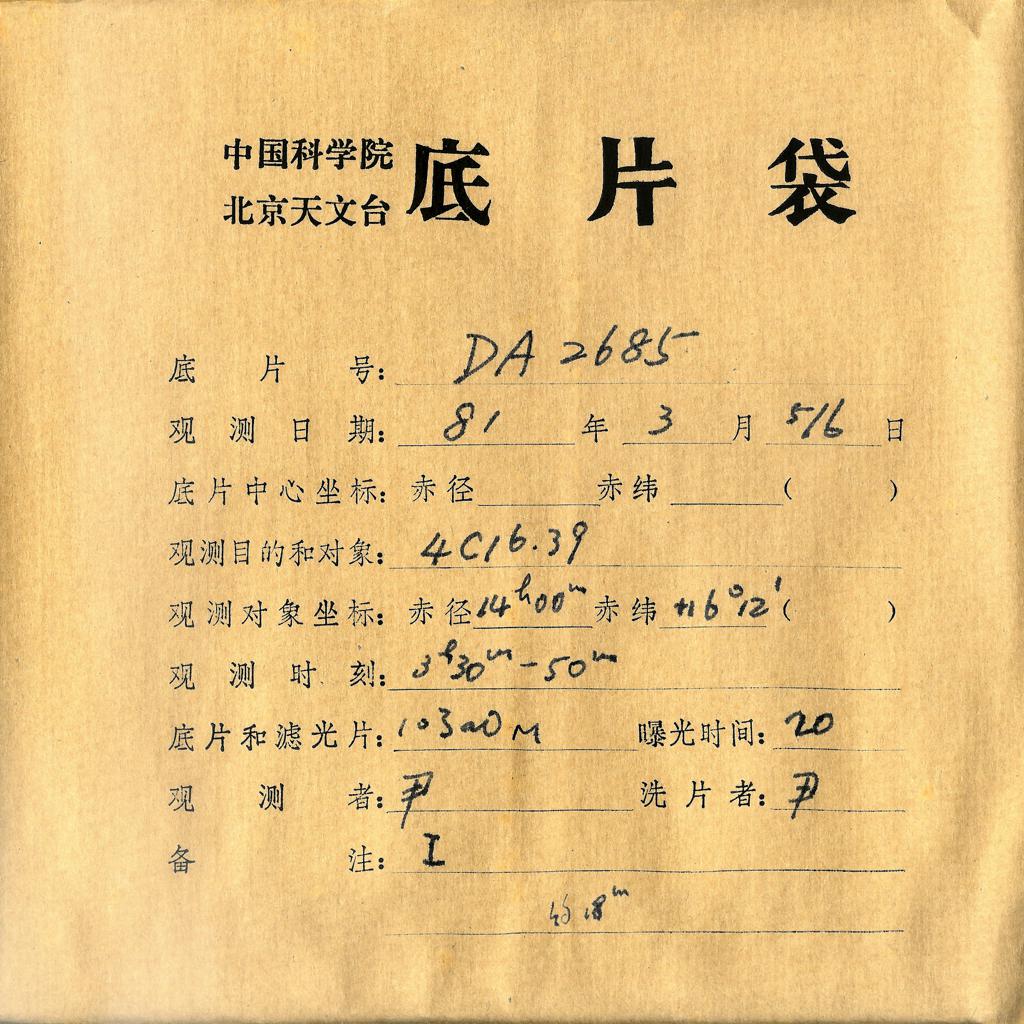 中国科学院
北京天文台
底片袋
底片号：DA 2685
观测日期：81年3月5/6日
底片中心坐标：赤径 赤纬 （ ）
观测目的和对象：4C16.39
观测对象坐标：赤径14ʰ00ᵐ赤纬+16°12′（ ）
观测时刻：3ʰ30ᵐ-50ᵐ
底片和滤光片：103aO 曝光时间：20
观测者：尹 洗片者：尹
备注：I
约18ᵐ